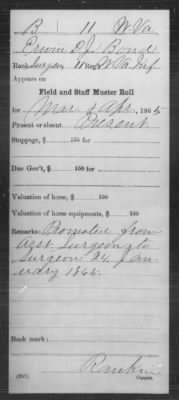 B 11 W.Va
Erwin D.J. Bond
Rank Surgeon 11 Reg't W Va Inf.
Appears on
Field and Staff Muster Roll
for Mar & Apr, 1865
Present or absent Present
Stoppage, $ 100 for
Due Gov't, $ 100 for
Valuation of horse, $ 100
Valuation of horse equipments, $ 100
Remarks: Promoted from
Asst. Surgeon to
Surgeon 24 Jan-
uary 1865.
Book mark:
Rankin
(857) Copyist.